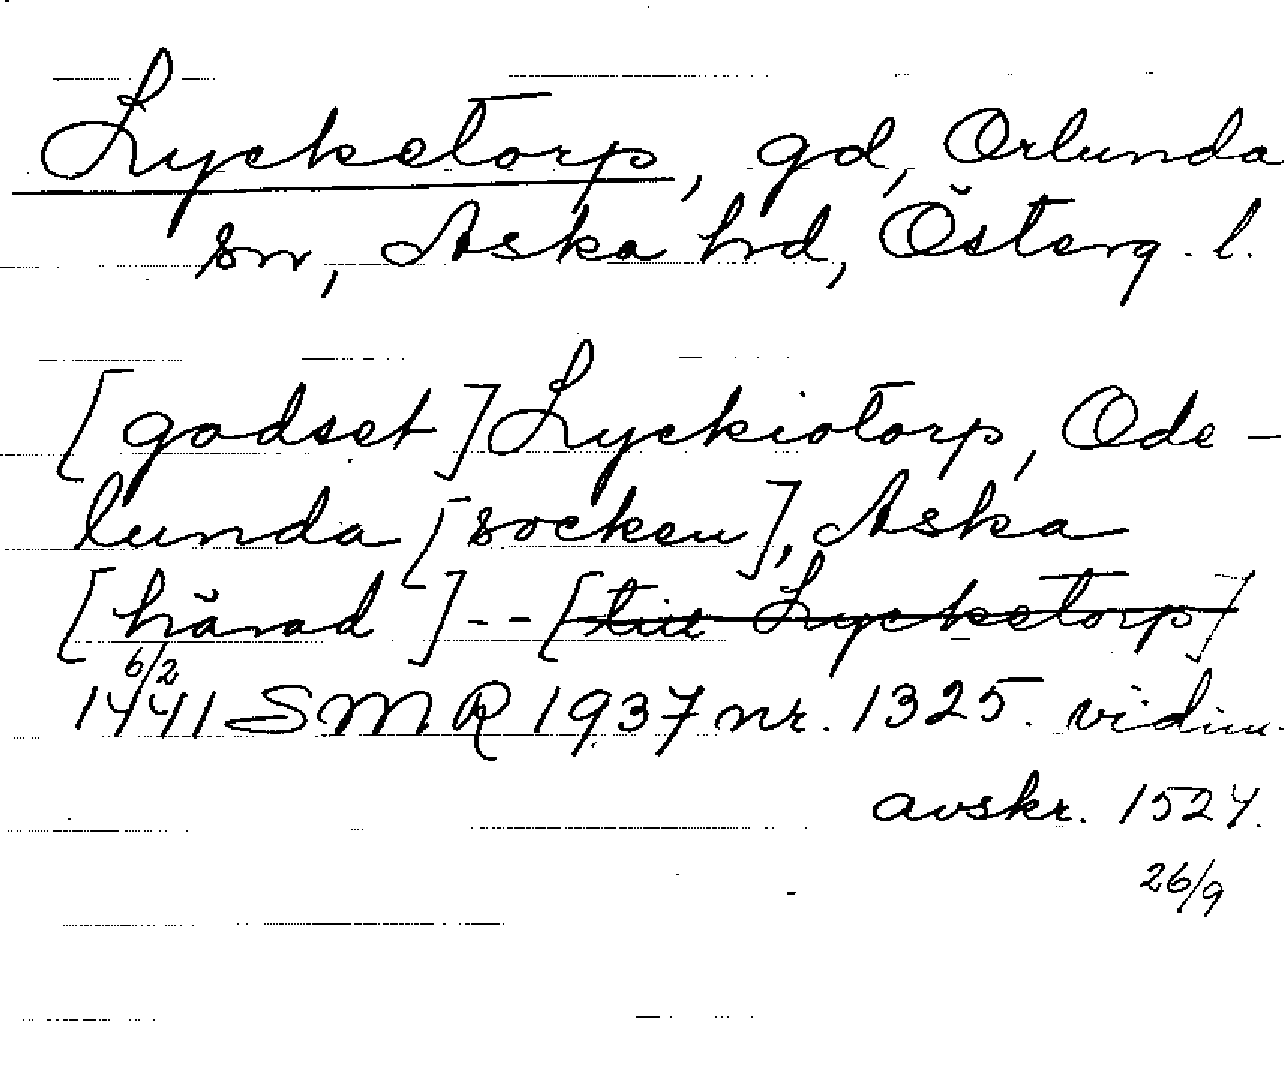 Lycketorp, gd, Orlunda
sn, Aska hrd, Österg. l.
[godset] Lyckiotorp, Ode-
lunda [socken], Aska
[härad] -- [till Lycketorp]
6/2
1441 SMR 1937 nr. 1325. vidim.
avskr. 1524.
26/9